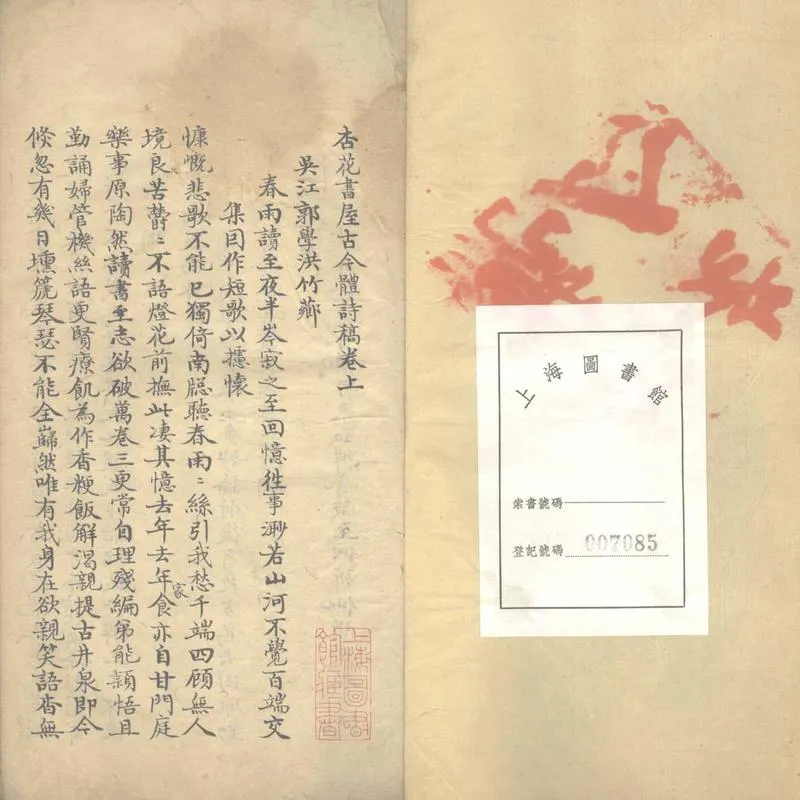 杏花書屋古今體詩稿卷上
吳江郭學洪竹薌
春雨讀至夜半岑寂之至回憶徃事渺若山河不覺百端交
集因作短歌以攄懷
慷慨悲歌不能已獨倚南牕聽春雨〻絲引我愁千端四顧無人
境良苦欝〻不語燈花前撫此凄其憶去年去年家食亦自甘門庭
樂事原陶然讀書至志欲破萬卷三更常自理殘編弟能穎悟且
勤誦婦管機絲語更賢療飢為作香粳飯解渴親提古井泉即今
倏忽有幾日壎篪琴瑟不能全巋然唯有我身在欲親笑語杳無
上海圖書館藏書
上海圖書館
索書號碼
登記號碼 007085